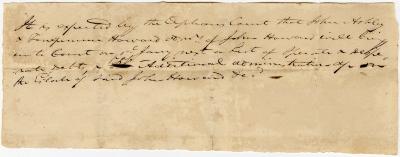 It is expected by the Orphans Court that John Ashby
& Howard Admrs of John Howard will bring
into Court on Jany next a List of Sperate & despe
rate debts & Additional administration on
the Estate of said John Howard Decd